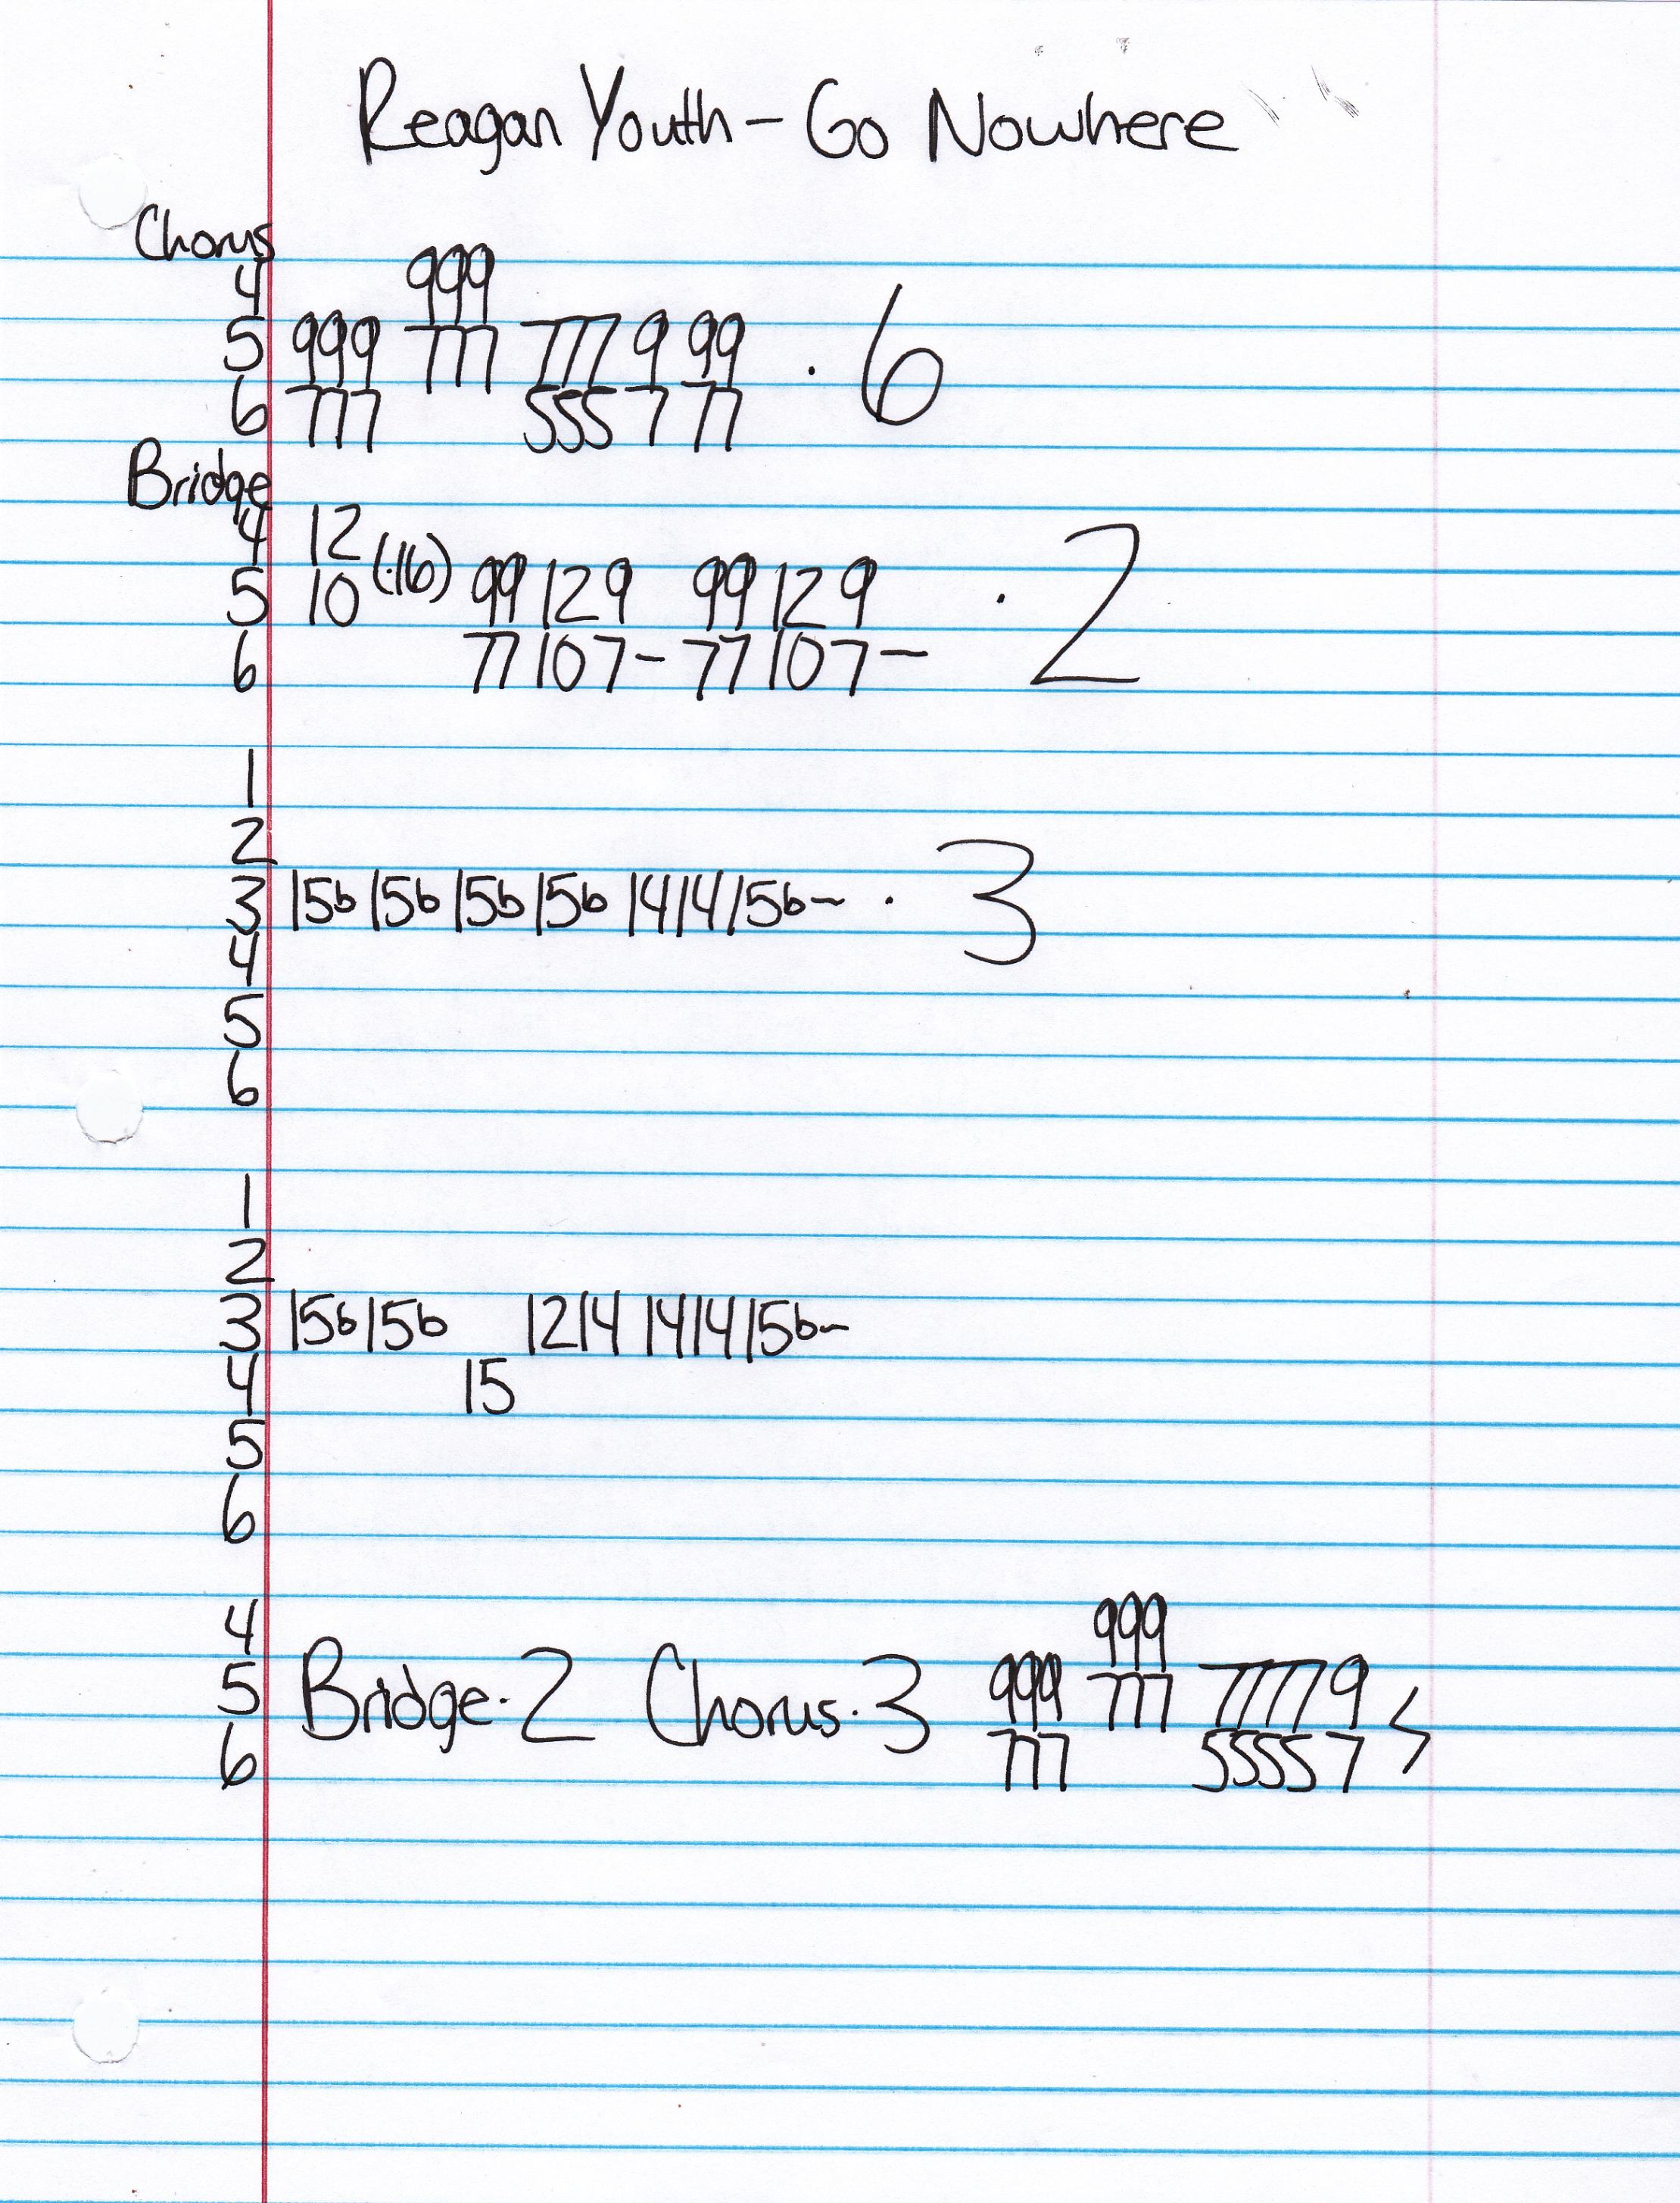 Reagan Youth - Go Nowhere
Chorus
4 999
5 999 777 777 9 99 · 6
6 777 555 7 77
Bridge
4 12
5 10 (·16) 99 12 9 99 12 9 · 2
6 77 10 7 - 77 10 7 -
1
2
3 15b 15b 15b 15b 14 14 15b~ · 3
4
5
6
1
2
3 15b 15b 12 14 14 14 15b~
4 15
5
6
4 999
5 Bridge·2 Chorus·3 999 777 7777 9
6 777 5555 7